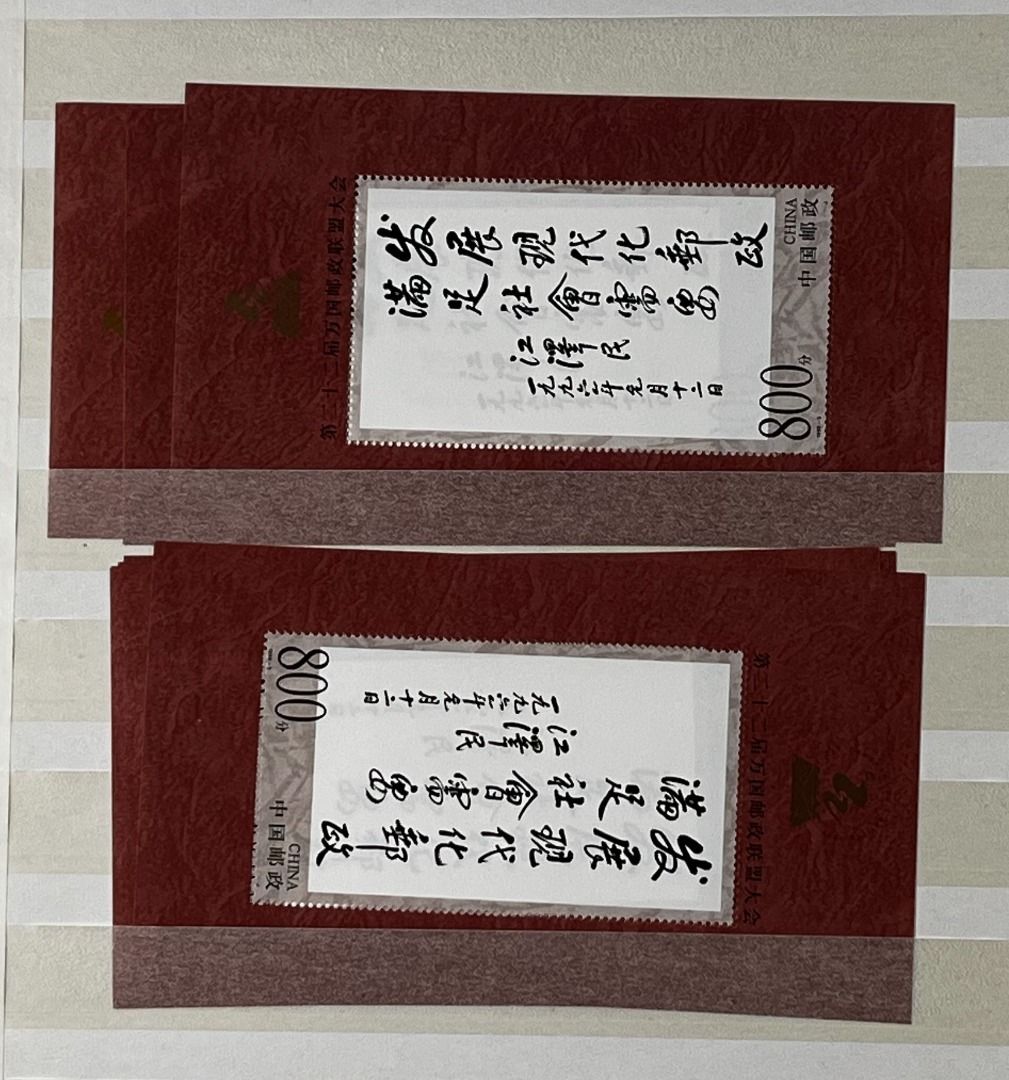 第二十二届万国邮政联盟大会
发展現代化郵政
满足社會需要
江澤民
一九九六年元月十二日
中国邮政
CHINA
800分
第二十二届万国邮政联盟大会
发展現代化郵政
满足社會需要
江澤民
一九九六年元月十二日
中国邮政
CHINA
800分